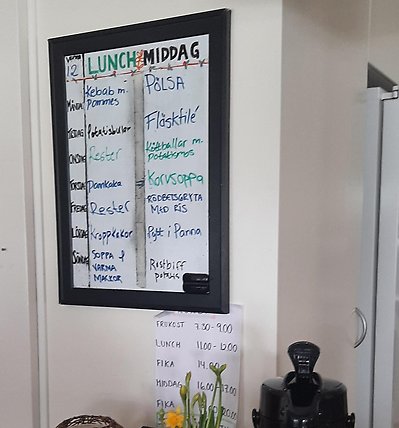 VECKA
12
LUNCH MIDDAG
MÅNDAG
Kebab m.
pommes
PÖLSA
TISDAG
Potatisbullar
Fläskfilé
ONSDAG
Rester
Köttbullar m.
potatismos
TORSDAG
Pannkaka
Korvsoppa
FREDAG
Rester
RÖDBETSGRYTA
MED RIS
LÖRDAG
Kroppkakor
Pytt i Panna
SÖNDAG
SOPPA &
VARMA
MACKOR
Rostbiff
FRUKOST 7.30-9.00
LUNCH 11.00-12.00
FIKA 14.00
MIDDAG 16.00-17.00
FIKA